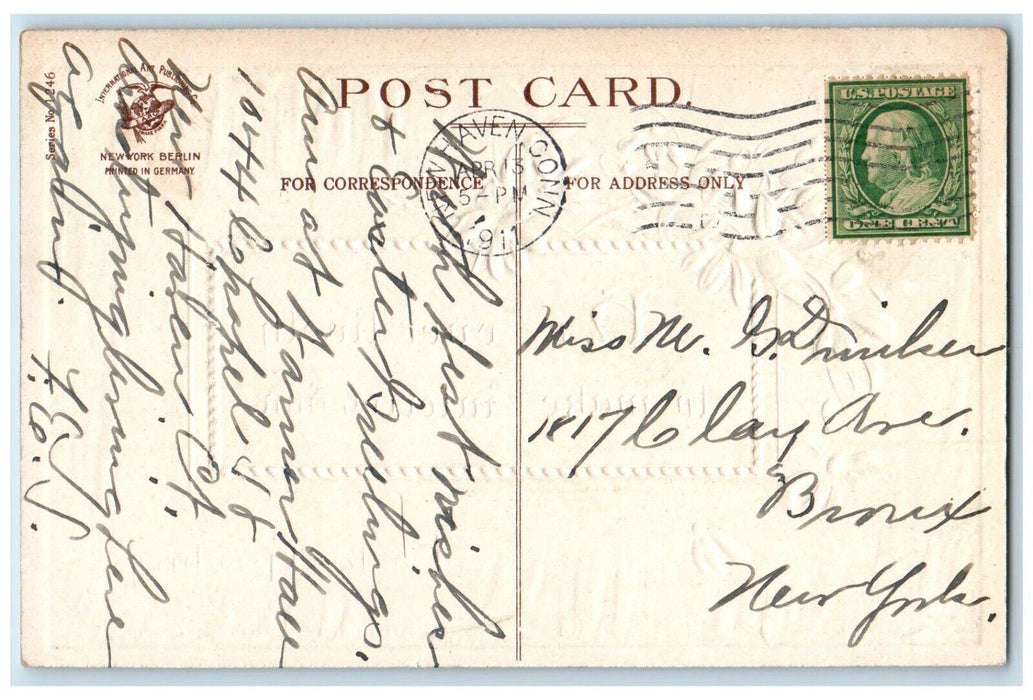 POST CARD.
Series No. 1246
INTERNATIONAL ART PUBLISHING Co.
NEW YORK BERLIN
PRINTED IN GERMANY
FOR CORRESPONDENCE
FOR ADDRESS ONLY
NEW HAVEN CONN
APR 13
5-PM
191
U.S. POSTAGE
ONE CENT
With best wishes
& Easter Greetings.
Am at Warner Hall
1044 Chapel St
New Haven Ct.
here
as
Miss M. G. Drinker
1817 Clay Ave.
Bronx
New York.